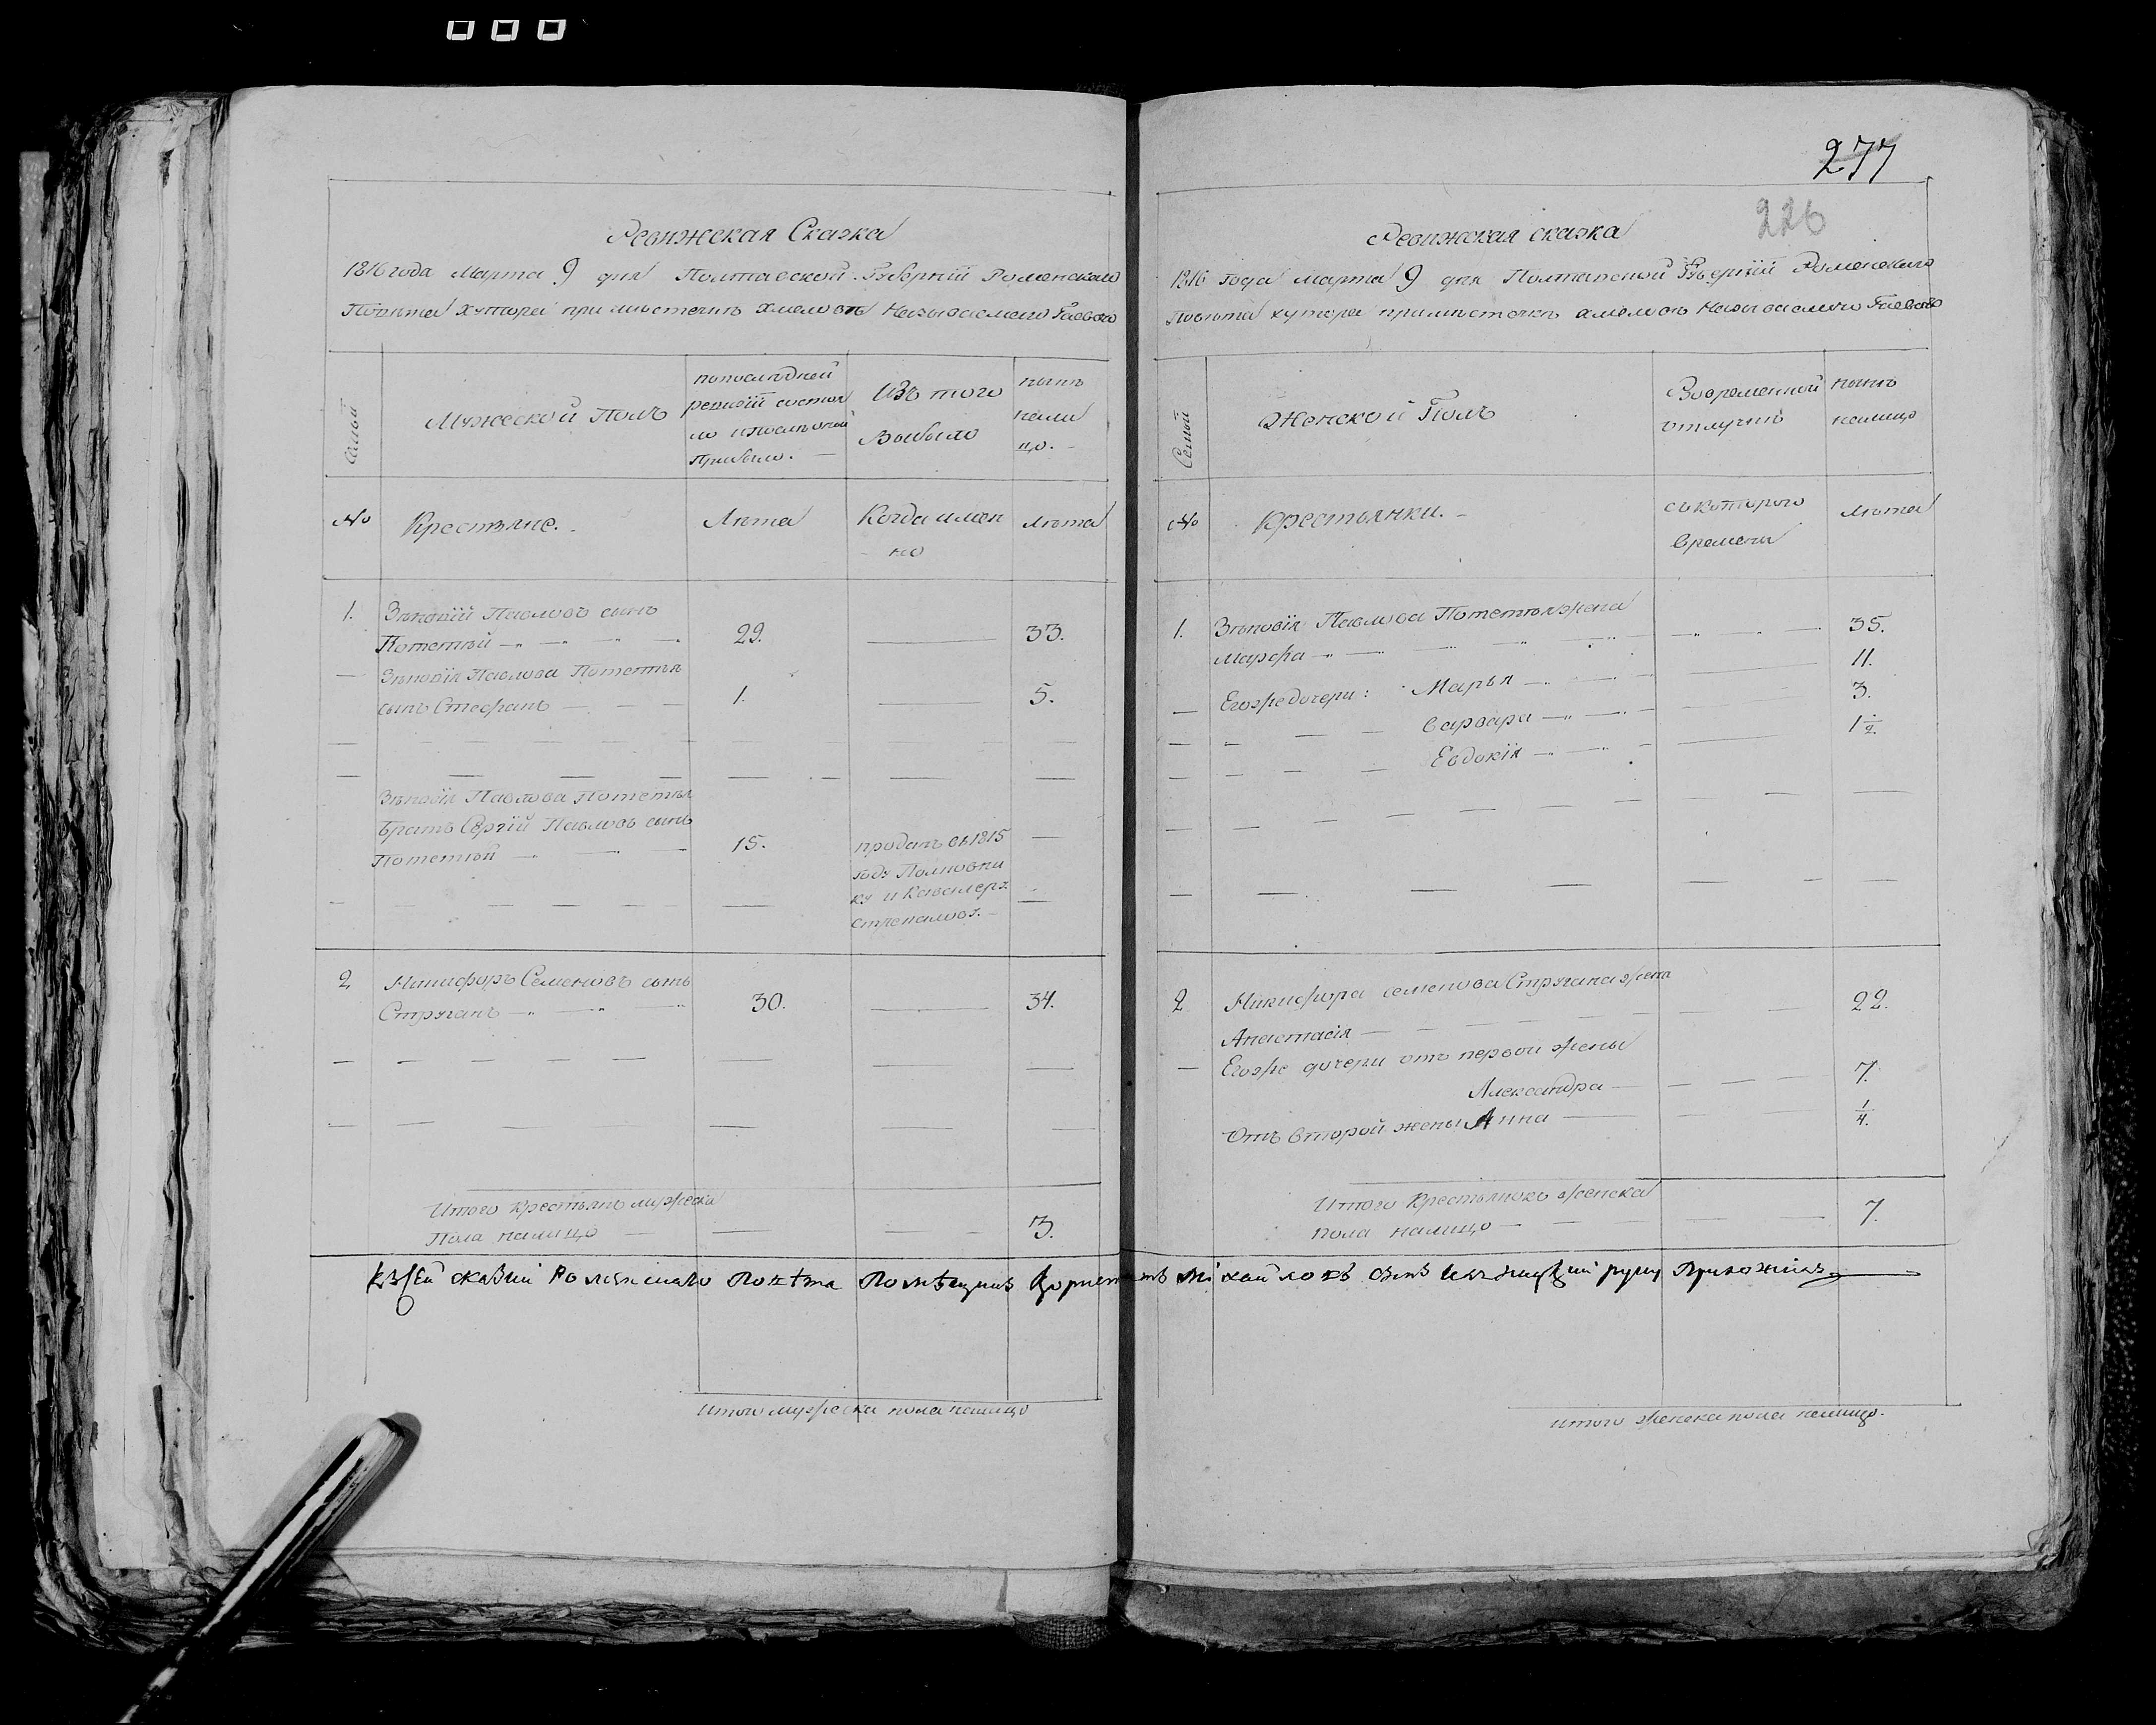 277
226
Ревижская Сказка
1816 года Марта 9 дня Полтавской Губернїй Роменского
Повѣта хутора при мѣстечкѣ Хмеловѣ Называемаго Гаевого
Семьй
Мужеской Полъ
попослѣдней
ревизїй состоя
ло ипослѣ оной
Прибыло.
Изъ того
Выбыло
нынѣ
нали
цо.
№
Крестьяне.
Лѣта
Когда имен
но
Лѣта
1.
Зѣновїй Павловъ сынъ
Потетѣй
29.
33.
Зѣновїя Павлова Потетѣя
сынъ Стефанъ
1.
5.
Зѣновїя Павлова Потетѣя
братъ Сергїй Павловъ сынъ
Потетѣй
15.
проданъ въ 1815
году Полковни
ку и Кавалеру
2
Никифоръ Семеновъ сынъ
Стручанъ
30.
34.
Итого Крестьянъ мужеска
Пола налицо
3.
Итого мужеска пола налицо
Ревижская сказка
1816 года марта 9 дня Полтавской Губернїй Роменского
Повѣта хутора примѣстечкѣ хмеловѣ Называемаго Гаевого
Семьй
Женской Полъ
Вовременной
отлучкѣ
нынѣ
налицо
№
Крестьянки.
съ которого
времени
Лѣта
1.
Зѣновїя Павлова Потетѣя жена
Марфа
35.
Егожедочери: Марья
11.
Варвара
3.
Евдокїя
1 1/2.
2
Никифора семенова Стручана жена
Анастасїя
22.
Егоже дочери отъ первой жены
Александра
7.
Отъ второй жены Анна
1/4.
Итого Крестьянокъ женска
пола налицо
7.
Къ сей сказки Роменскаго Повѣта Помѣщикъ Михайловъ сынъ руку Приложилъ
Итого женска пола налицо.